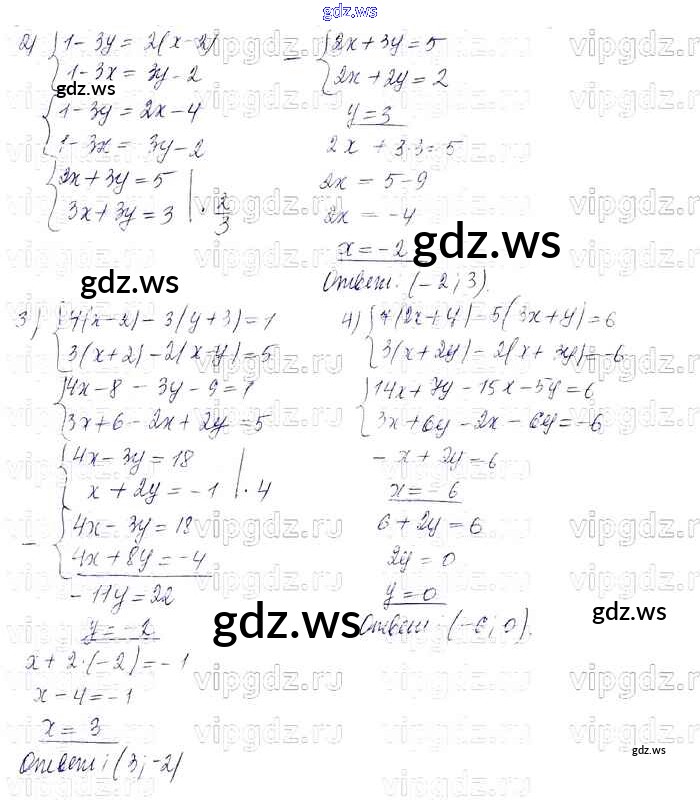 gdz.ws
2) { 1 - 3y = 2(x - 2)
1 - 3x = 3y - 2
gdz.ws
{ 1 - 3y = 2x - 4
1 - 3x = 3y - 2
{ 2x + 3y = 5
3x + 3y = 3 | · 2/3
- { 2x + 3y = 5
2x + 2y = 2
y = 3
2x + 3·3 = 5
2x = 5 - 9
2x = -4
x = -2
gdz.ws
Ответ: (-2; 3).
gdz.ws
3) { 4(x - 2) - 3(y + 3) = 1
3(x + 2) - 2(x - y) = 5
{ 4x - 8 - 3y - 9 = 1
3x + 6 - 2x + 2y = 5
{ 4x - 3y = 18
x + 2y = -1 | · 4
- { 4x - 3y = 18
4x + 8y = -4
-11y = 22
y = -2
x + 2·(-2) = -1
x - 4 = -1
x = 3
Ответ: (3; -2)
4) { 7(2x + y) - 5(3x + y) = 6
3(x + 2y) - 2(x + 3y) = -6
{ 14x + 7y - 15x - 5y = 6
3x + 6y - 2x - 6y = -6
- x + 2y = 6
x = -6
6 + 2y = 6
2y = 0
y = 0
Ответ: (-6; 0).
gdz.ws
gdz.ws
gdz.ws
vipgdz.ru